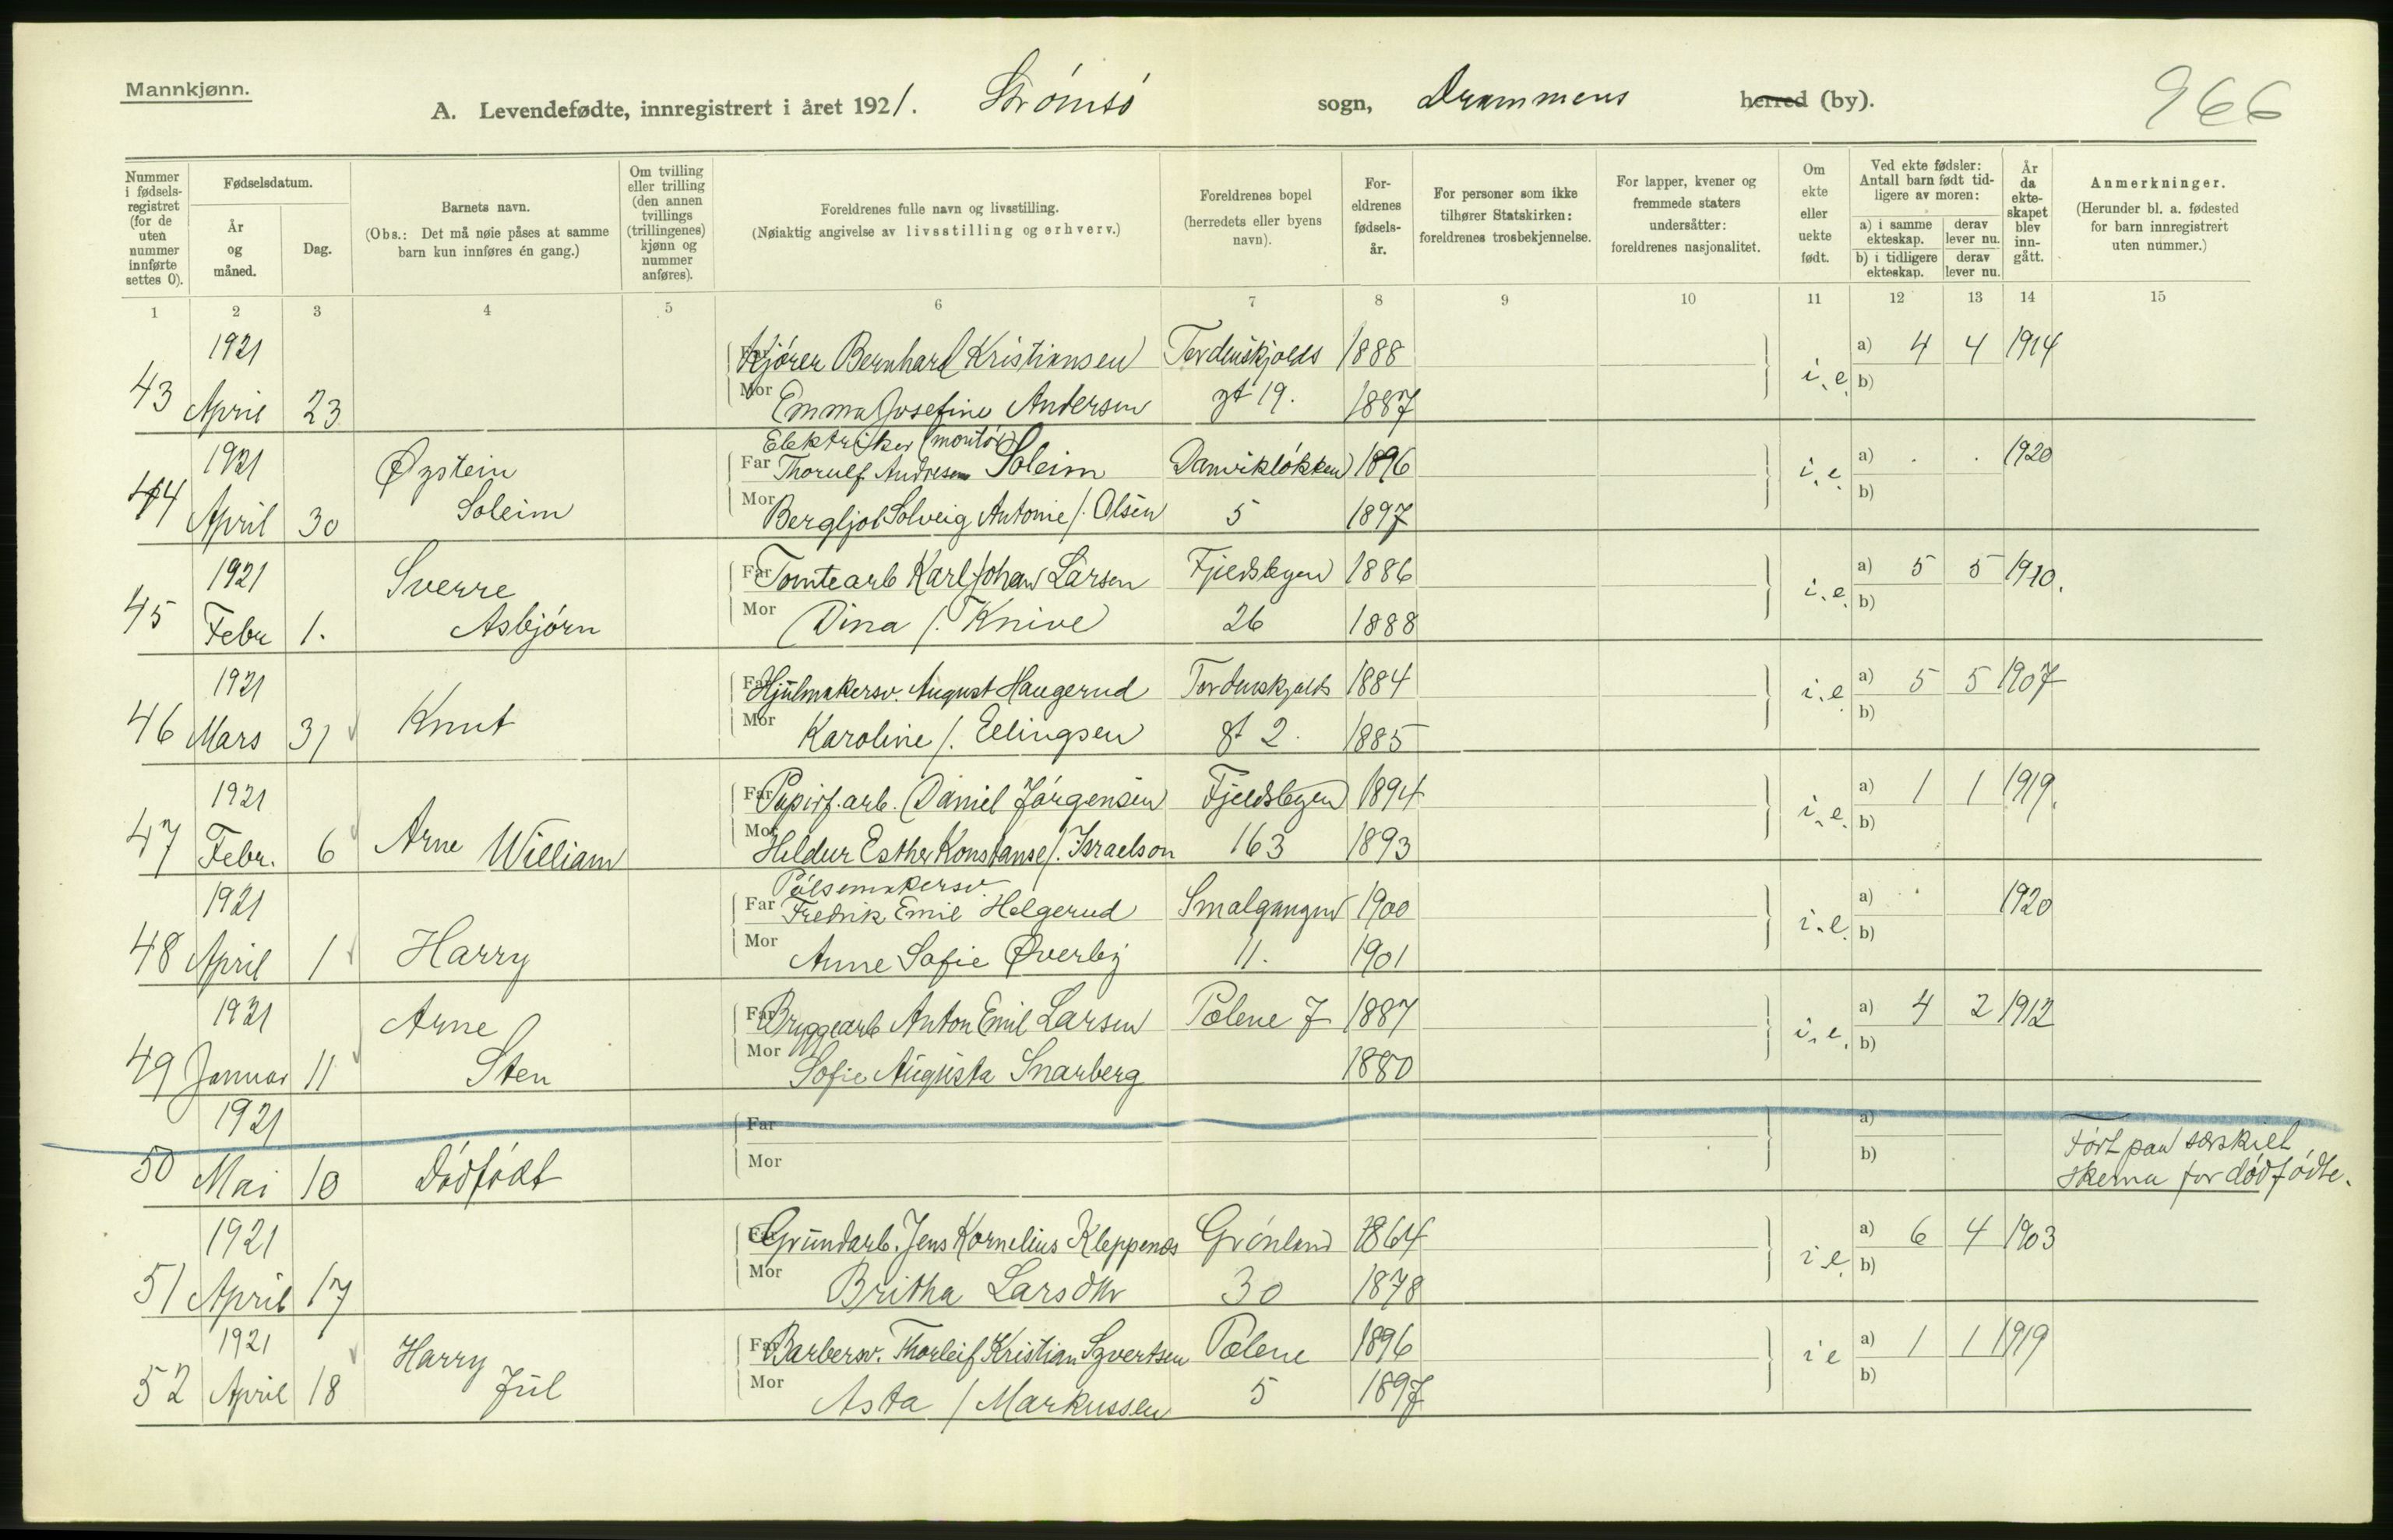 Mannkjønn.
A. Levendefødte, innregistrert i året 1921. Strömsö sogn, Drammens herred (by).
966
Nummer i fødsels-registret (for de uten nummer innførte settes 0).
Fødselsdatum.
År og måned.
Dag.
Barnets navn.
(Obs.: Det må nøie påses at samme barn kun innføres én gang.)
Om tvilling eller trilling (den annen tvillings (trillingenes) kjønn og nummer anføres).
Foreldrenes fulle navn og livsstilling.
(Nøiaktig angivelse av livsstilling og erhverv.)
Foreldrenes bopel
(herredets eller byens navn).
For-eldrenes fødsels-år.
For personer som ikke tilhører Statskirken: foreldrenes trosbekjennelse.
For lapper, kvener og fremmede staters undersåtter: foreldrenes nasjonalitet.
Om ekte eller uekte født.
Ved ekte fødsler: Antall barn født tid-ligere av moren:
a) i samme ekteskap. derav lever nu.
b) i tidligere ekteskap. derav lever nu.
År da ekte-skapet blev inn-gått.
Anmerkninger.
(Herunder bl. a. fødested for barn innregistrert uten nummer.)
1 2 3 4 5 6 7 8 9 10 11 12 13 14 15
1921 Far Kjörer Bernhard Kristiansen Tordenskjolds 1888 a) 4 4 1914
43 April 23 Mor Emma Josefine Andersen gt 19. 1887 i.e. b)
Elektriker (montör)
1921 Øystein Far Thorulf Andresen Soleim Danvikløkken 1896 i.e. a) . . 1920
44 April 30 Soleim Mor Bergljot Solveig Antonie /. Olsen 5 1897 b)
1921 Sverre Far Tomtearb Karl Johan Larsen Fjeldsbyen 1886 a) 5 5 1910.
45 Febr 1. Asbjörn Mor Dina /. Knive 26 1888 i.e. b)
1921 Far Hjulmakersv. August Haugerud Tordenskjolds 1884 i.e a) 5 5 1907
46 Mars 31 Knut Mor Karoline /. Ellingsen gt 2. 1885 b)
1921 Far Papirf.arb. Daniel Jörgensen Fjeldsbyen 1894 a) 1 1 1919.
47 Febr. 6 Arne William Mor Hildur Esther Konstanse /. Israelson 163 1893 i.e. b)
Pölsemakersv.
1921 Far Fredrik Emil Helgerud Smalgangen 1900 a) 1920
48 April 1 Harry Mor Anne Sofie Øverby 11. 1901 i.e. b)
1921 Arne Far Bryggearb Anton Emil Larsen Pælene 7 1887 a) 4 2 1912
49 Januar 11 Sten Mor Sofie Augusta Snarberg 1880 i.e. b)
1921 Far a) Fört paa særskilt
50 Mai 10 Dödfödt Mor b) skema for dödfödte.
1921 Far Grundarb. Jens Kornelius Kleppenes Grönland 1864 a) 6 4 1903
51 April 17 Mor Britha Larsdtr 30 1878 i.e. b)
1921 Harry Far Barbersv. Thorleif Kristian Syvertsen Pælene 1896 i e a) 1 1 1919
52 April 18 Jul Mor Asta / Markussen 5 1897 b)